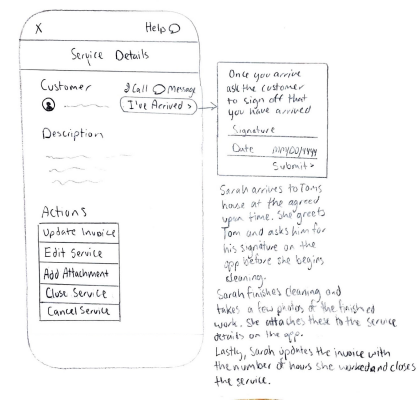 X
Help
Service Details
Customer
Call
Message
I've Arrived >
Description
Actions
Update Invoice
Edit Service
Add Attachment
Close Service
Cancel Service
Once you arrive
ask the customer
to sign off that
you have arrived
Signature
Date MM/DD/YYYY
Submit >
Sarah arrives to Toms
house at the agreed
upon time. She greets
Tom and asks him for
his signature on the
app before she begins
cleaning.
Sarah finishes cleaning and
takes a few photos of the finished
work. She attaches these to the service
details on the app.
Lastly, Sarah updates the invoice with
the number of hours she worked and closes
the service.